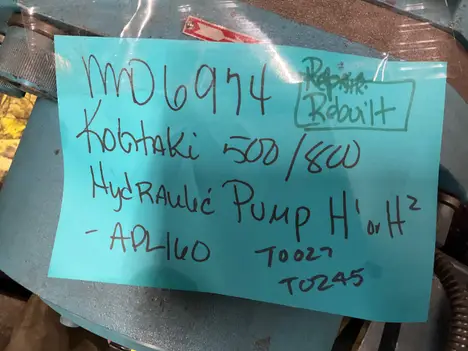 MD6974
Rebuilt
KobtaKi 500/800
Hydraulic Pump H1 or H2
- APL160
T0027
T0245